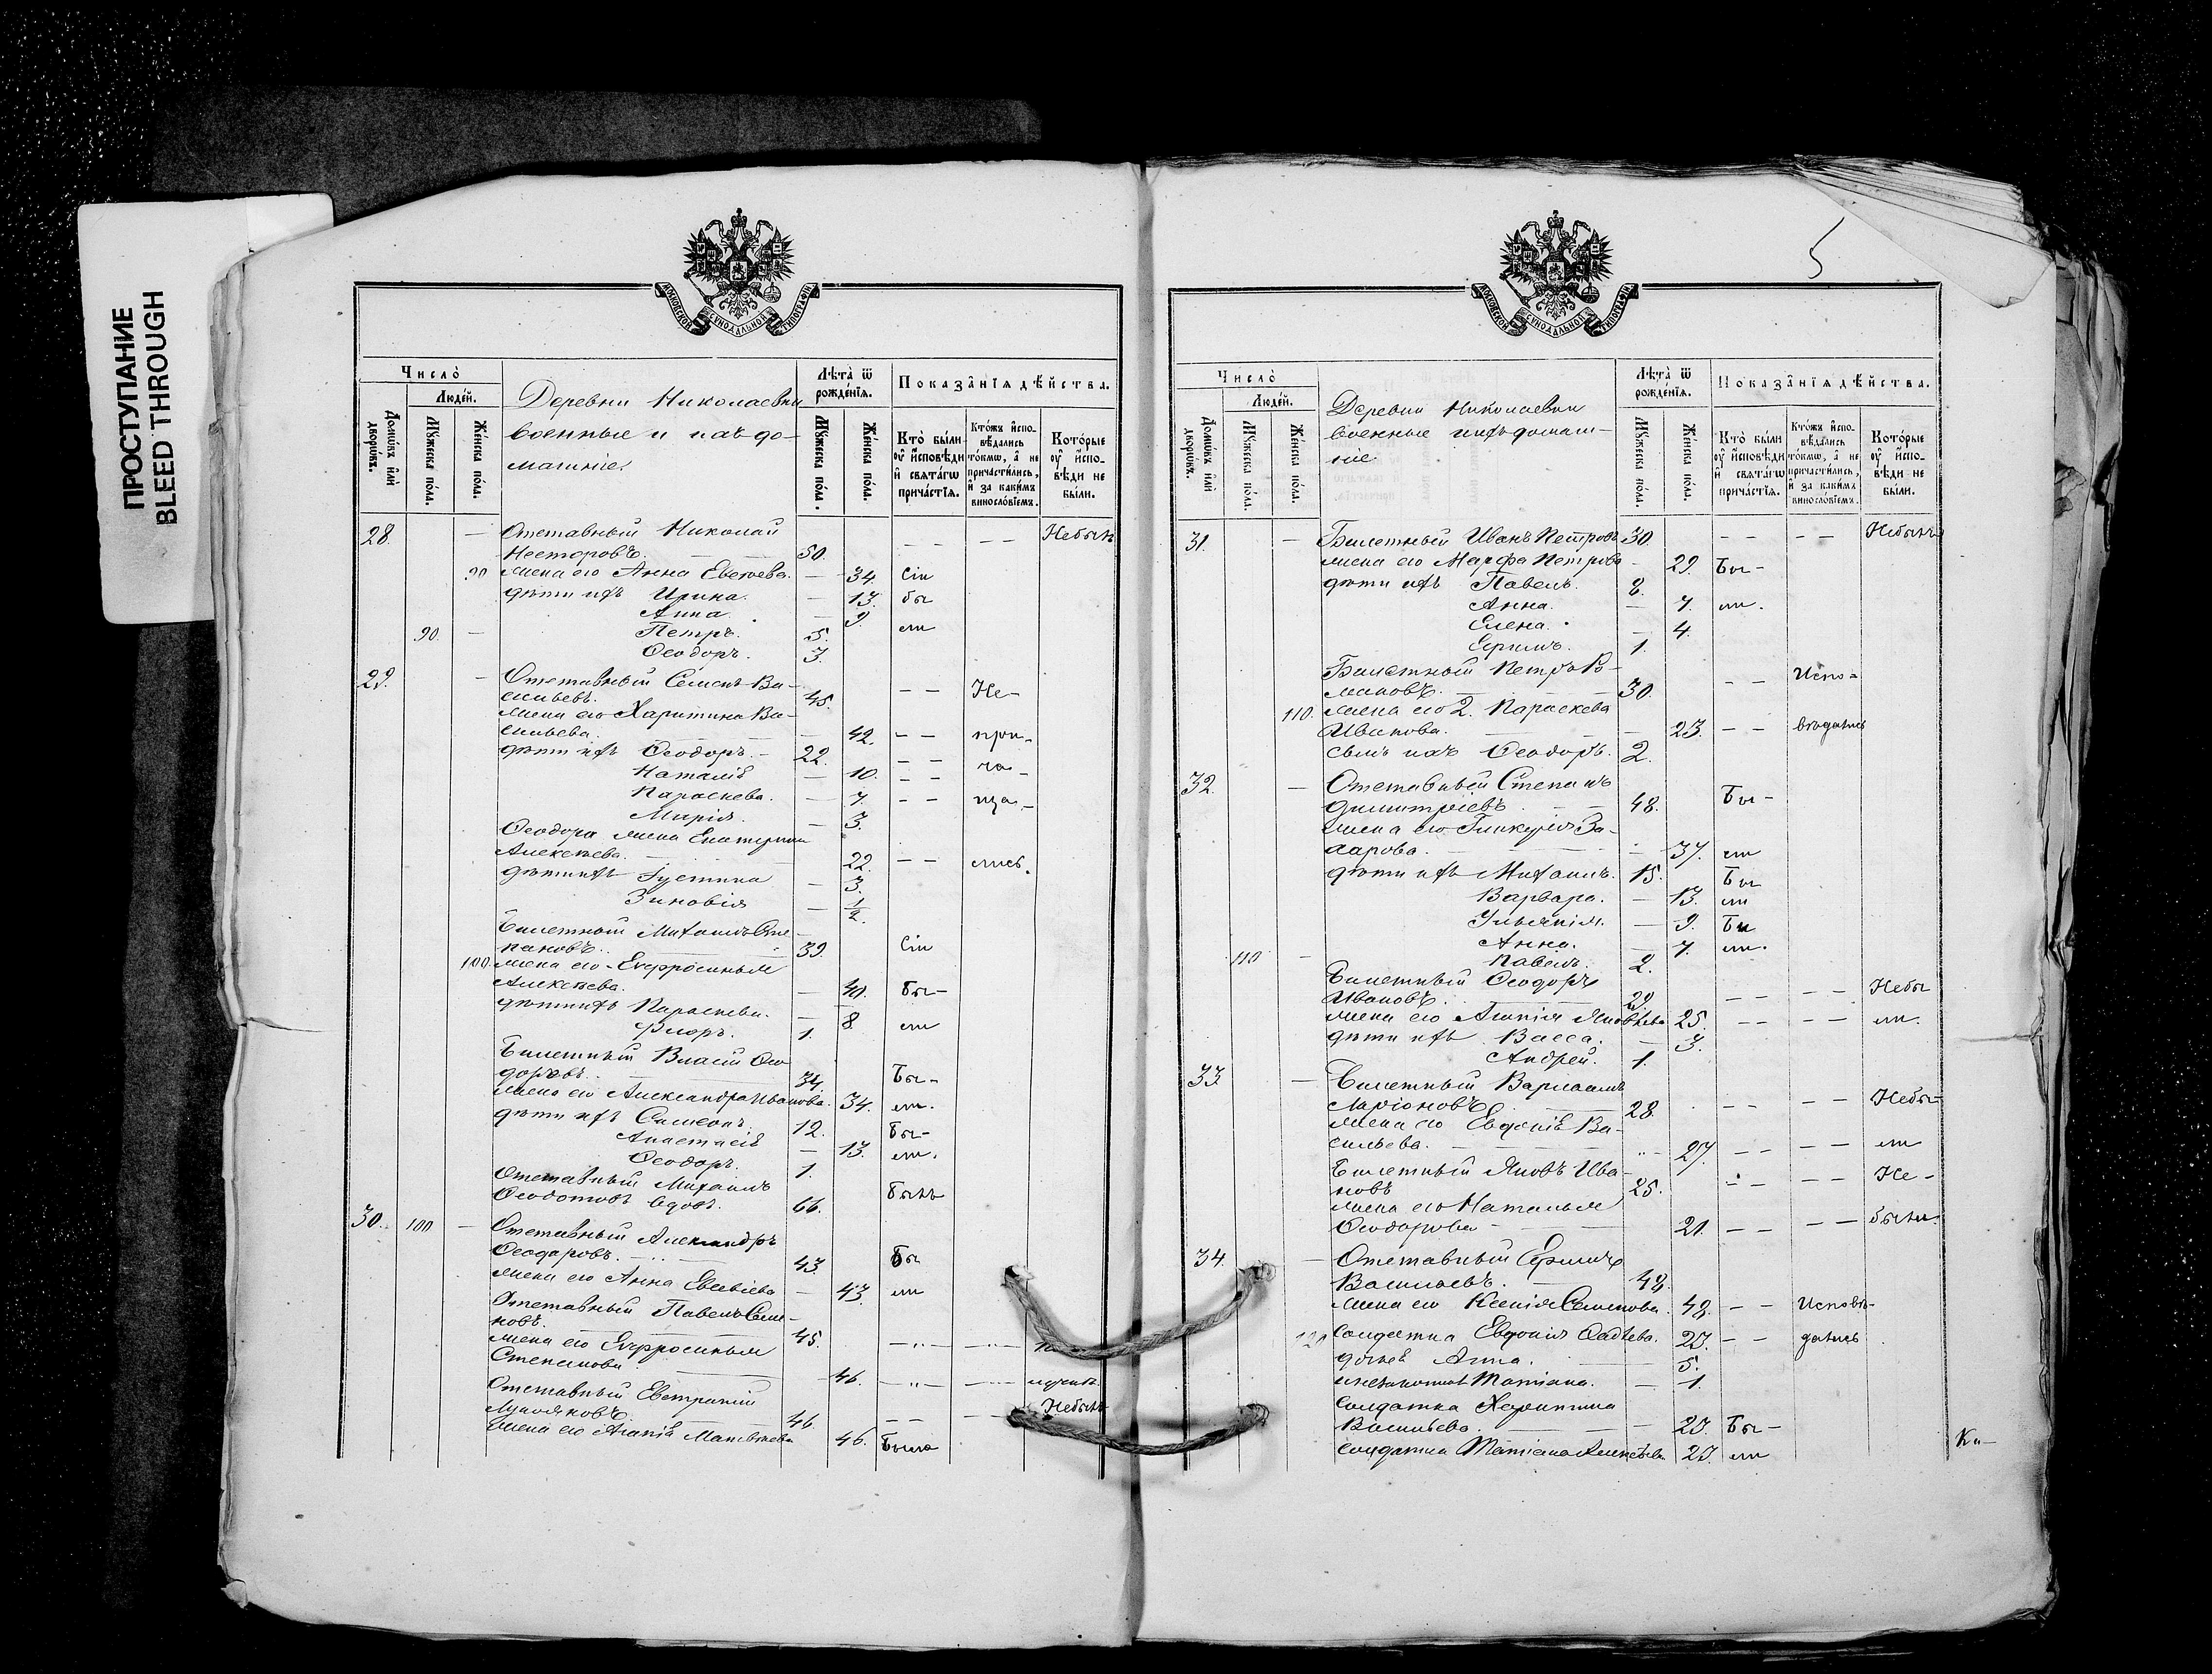 ПРОСТУПАНИЕ
BLEED THROUGH
МОСКОВСКОЙ СѴНОДАЛЬНОЙ ТИПОГРАФІИ
Число̀
Людей.
Домѡвъ и҆лѝ дворѡвъ.
Мꙋжеска пола.
Женска пола.
Деревни Николаевки
военные и ихъ до-
машніе
Лѣта̀ ѿ рожденїѧ.
Мꙋжеска пола.
Женска пола.
Показанїѧ дѣйства.
Кто̀ были ᲂу҆ и҆сповѣди и҆ свѧтагѡ причастїѧ.
Ктожъ и҆сповѣдались токмѡ, а҆ не причастились, и҆ за какимъ винословїемъ.
Которые ᲂу҆ и҆сповѣди не были.
28. — Отставный Николай Небылъ
Несторовъ. 50. — —
90 жена его Анна — 34. Сіи
дѣти ихъ Ирина. — 13. бы
Анна. — 9.
90. — Петръ. 5. ли
Ѳеодоръ. 3.
29. — Отставный Семенъ Ва-
сильевъ. 45. — — Не-
жена его Харитина Ва-
сильева. — 42. — — при-
дѣти ихъ Ѳеодоръ. — 22. — — ча-
Наталія — 10. — —
Параскева. — 7. — — ща-
Марія. — 3.
Ѳеодора жена Екатерина
Алексѣева. — 22. — — лись.
дѣти ихъ Іустина — 3.
Зиновія — 1/2.
Билетный Михаилъ Сте-
пановъ. 39. Сіи
100. жена его Евфросинья
Алексѣева. — 40. Бы-
дѣти ихъ Параскева. — 8. ли
Флоръ. 1.
Билетный Власій Ѳео-
доровъ. 34. Бы-
жена его Александра Иванова. 34. ли.
дѣти ихъ Симеонъ. 12. Бы-
Анастасія — 13. ли.
Ѳеодоръ. 1.
Отставный Михаилъ
Ѳедотовъ вдовъ. 66. Былъ
30. 100 — Отставный Александръ
Ѳеодоровъ. — 43. Бы
жена его Анна Евсевіева — 43. ли
Отставный Павелъ Семе-
новъ. 45.
жена его Евфросинья
Степанова. 46.
Отставный Евстратій Небылъ
46. — —
жена его Агапія Матвѣева 46. Была
5
МОСКОВСКОЙ СѴНОДАЛЬНОЙ ТИПОГРАФІИ
Число̀
Людей.
Домѡвъ и҆лѝ дворѡвъ.
Мꙋжеска пола.
Женска пола.
Деревни Николаевки
военные ихъ домаш-
ніе
Лѣта̀ ѿ рожденїѧ.
Мꙋжеска пола.
Женска пола.
Показанїѧ дѣйства.
Кто̀ были ᲂу҆ и҆сповѣди и҆ свѧтагѡ причастїѧ.
Ктожъ и҆сповѣдались токмѡ, а҆ не причастились, и҆ за какимъ винословїемъ.
Которые ᲂу҆ и҆сповѣди не были.
31. — Билетный Иванъ Петровъ 30. — — — — Небылъ
жена его Марфа Петрова — 29. Бы-
дѣти ихъ Павелъ. 8.
Анна. — 7. ли.
Елена. — 4.
Ефимъ. 1.
Билетный Петръ Ро-
мановъ. 30. — — Испо-
110. жена его 2. Параскева
Иванова. — 23. — — вѣдались
сынъ ихъ Ѳеодоръ. 2.
32. — Отставный Степанъ
Димитріевъ. 48. Бы-
жена его Гликерія За-
харова. — 37. ли
дѣти ихъ Михаилъ. 15. Бы
Варвара. — 13. ли
Ульянія. — 9. Бы
Анна. — 7. ли.
110 — Павелъ. 2.
Билетный Ѳеодоръ
Ивановъ. 29. — — — — Небы
жена его Яковлева 25. — — — — ли.
дѣти ихъ Васса. — 3.
Андрей. 1.
33. — Билетный Варлаамъ
Ларіоновъ. 28. — — — — Небы-
жена его Евдокія Ва-
сильева. — 27. — — — — ли
Билетный Яковъ Ива-
новъ 25. — — — — Не-
жена его Наталья
Ѳеодорова — 21. — — — — были.
34. — Отставный Ефимъ
Васильевъ. — 48.
жена его Ксенія Семенова. 48. — — Исповѣ-
120 солдатка Евдокія Ѳадѣева. 29. — — дались
дочь ея Анна. — 5.
незаконная Татіана. — 1.
солдатка Харитина
Васильева. — 29. Бы-
солдатка Татіана Алексѣева. 29. ли
Ка-